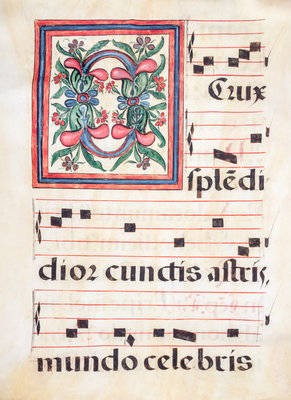 O
Crux
splẽdi
dior cunctis astris,
mundo celebris